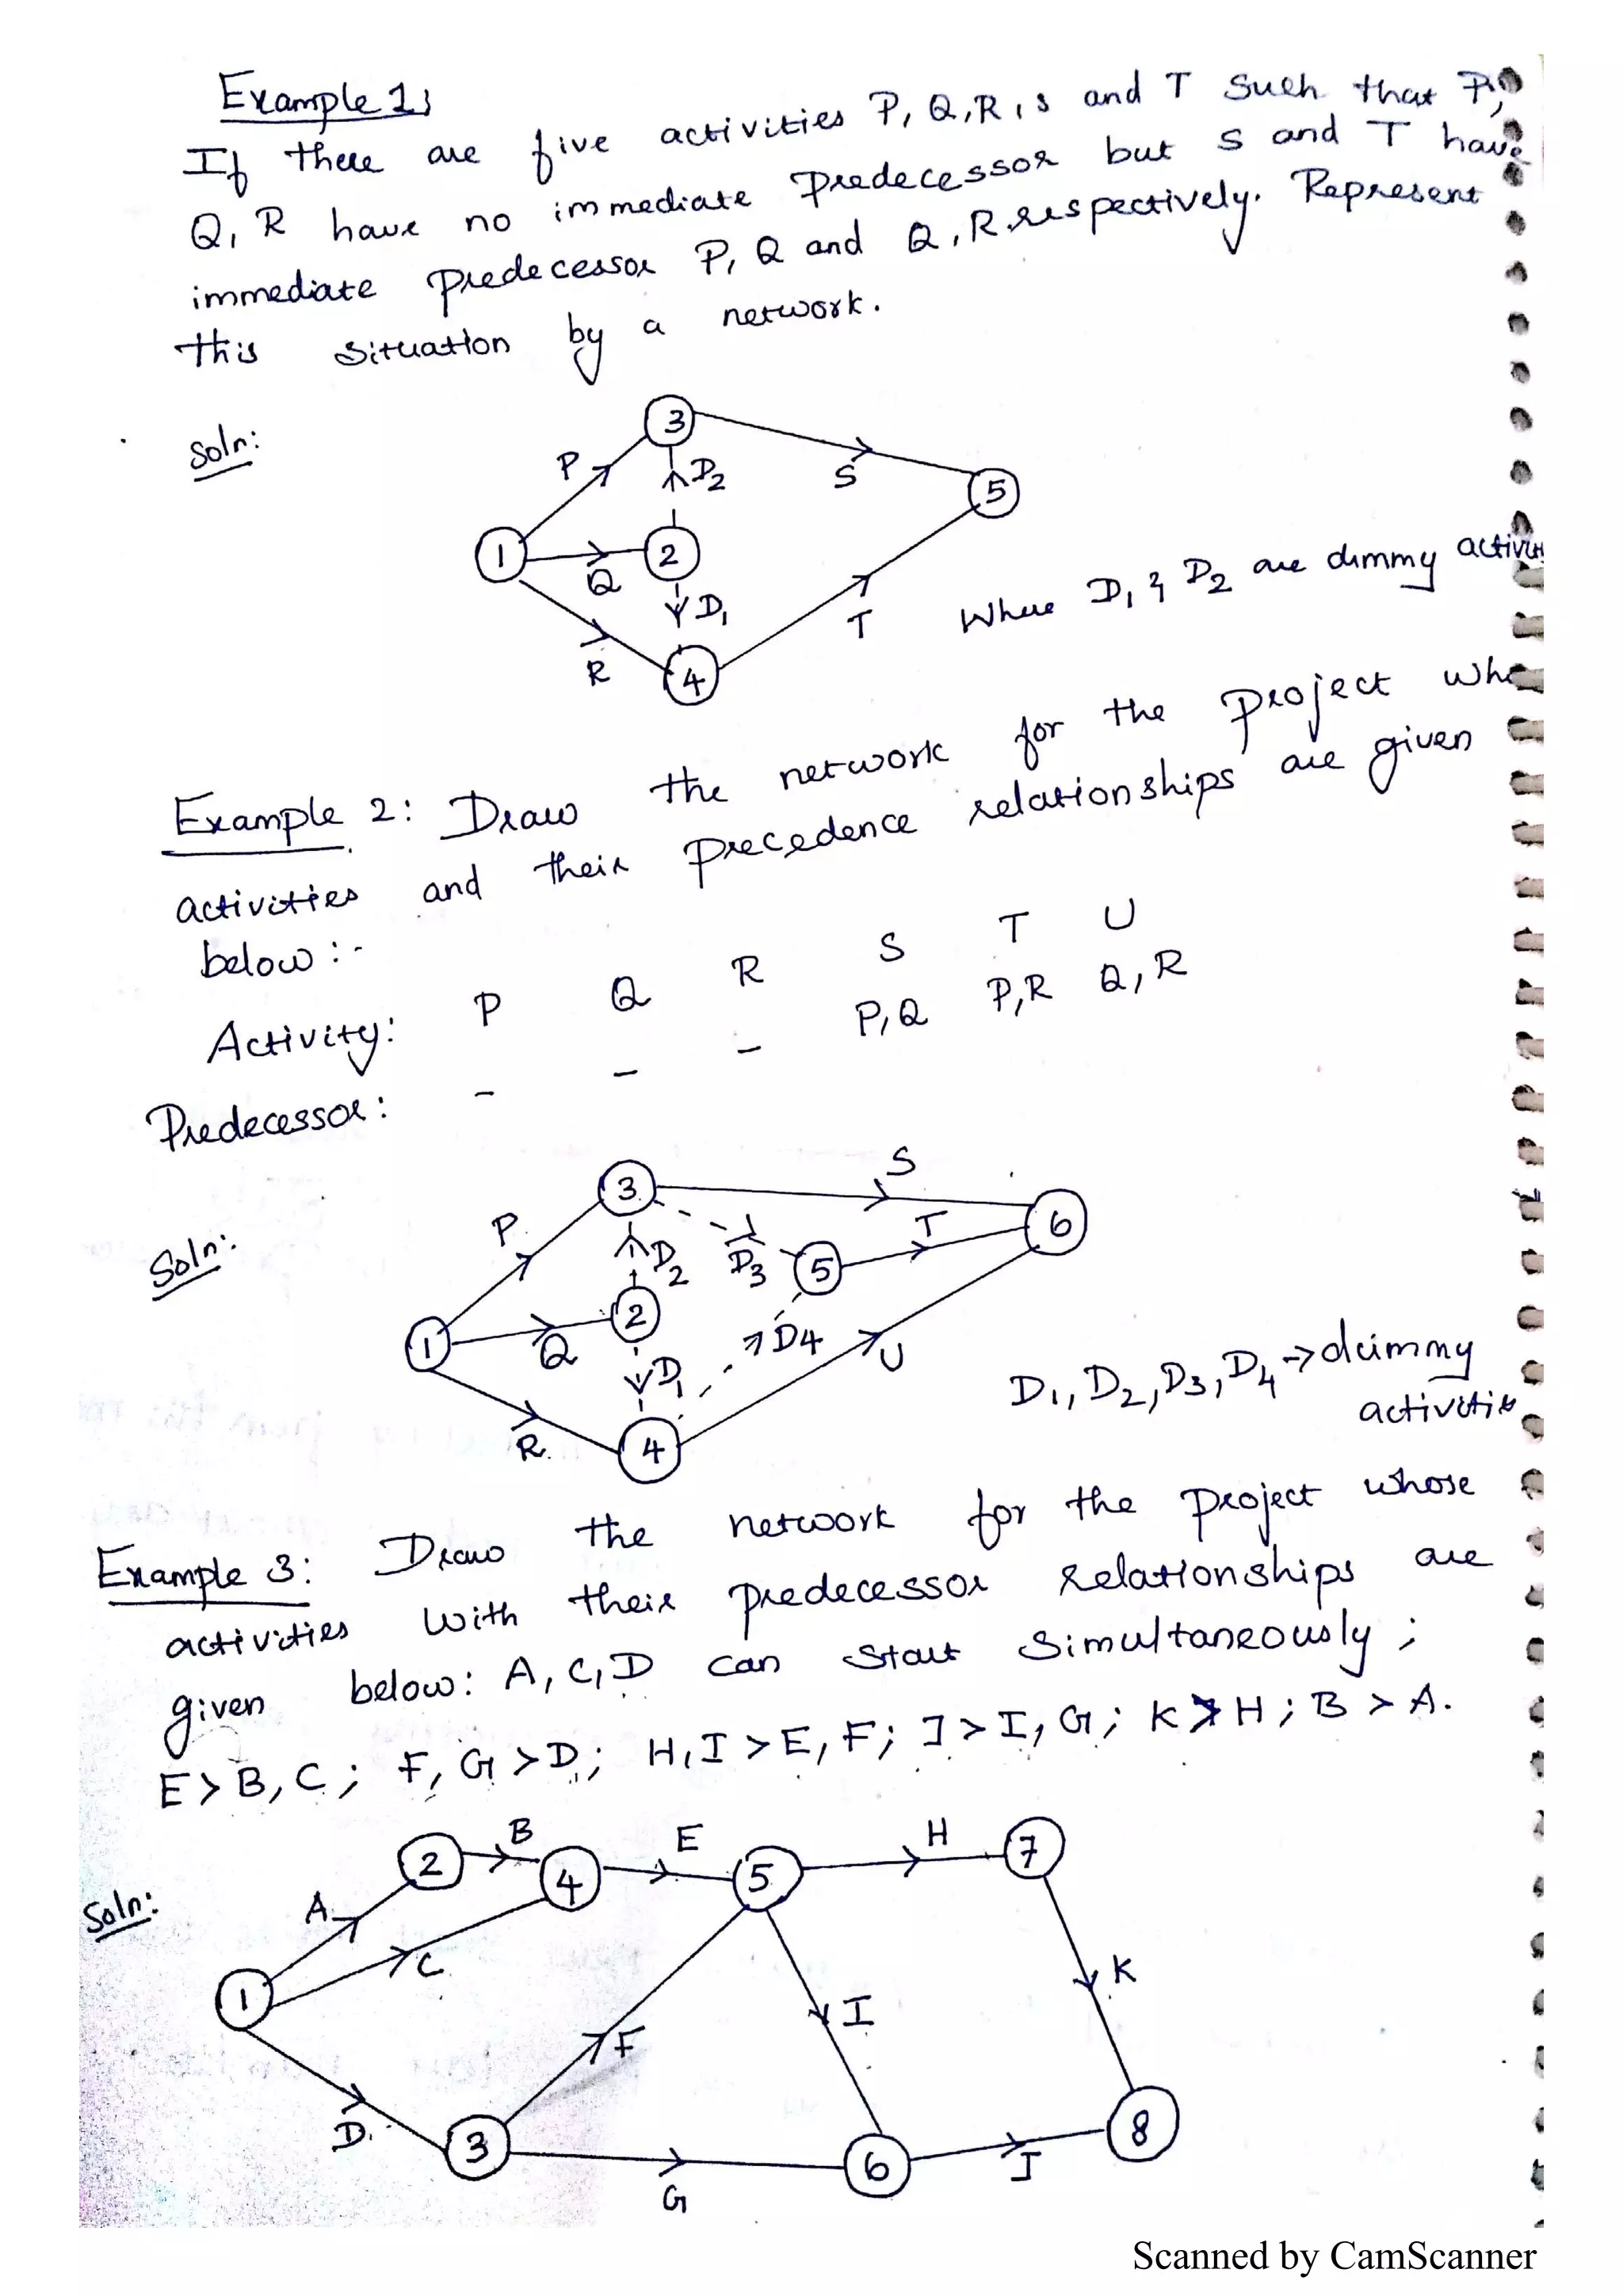 Example 1:
If there are five activities P, Q, R, S and T such that P,
Q, R have no immediate predecessor but S and T have
immediate predecessor P, Q and Q, R respectively. Represent
this situation by a network.
Soln:
3
P
D2
S
5
1
2
Q
D1
T
R
4
Where D1 & D2 are dummy
Example 2: Draw the network for the project
activities and their precedence relationships are given
below:-
Activity: P Q R S T U
Predecessor: - - - P,Q P,R Q,R
Soln:
S
3
P
T
6
D2
D3
5
2
1
Q
D4
D1
U
R
4
D1, D2, D3, D4 → dummy
Example 3: Draw the network for the project whose
activities with their predecessor relationships are
given below: A, C, D can start simultaneously;
E > B, C; F, G > D; H, I > E, F; J > I, G; K > H; B > A.
Soln:
B
E
H
7
2
4
5
A
C
K
1
I
F
D
3
8
6
J
G
Scanned by CamScanner